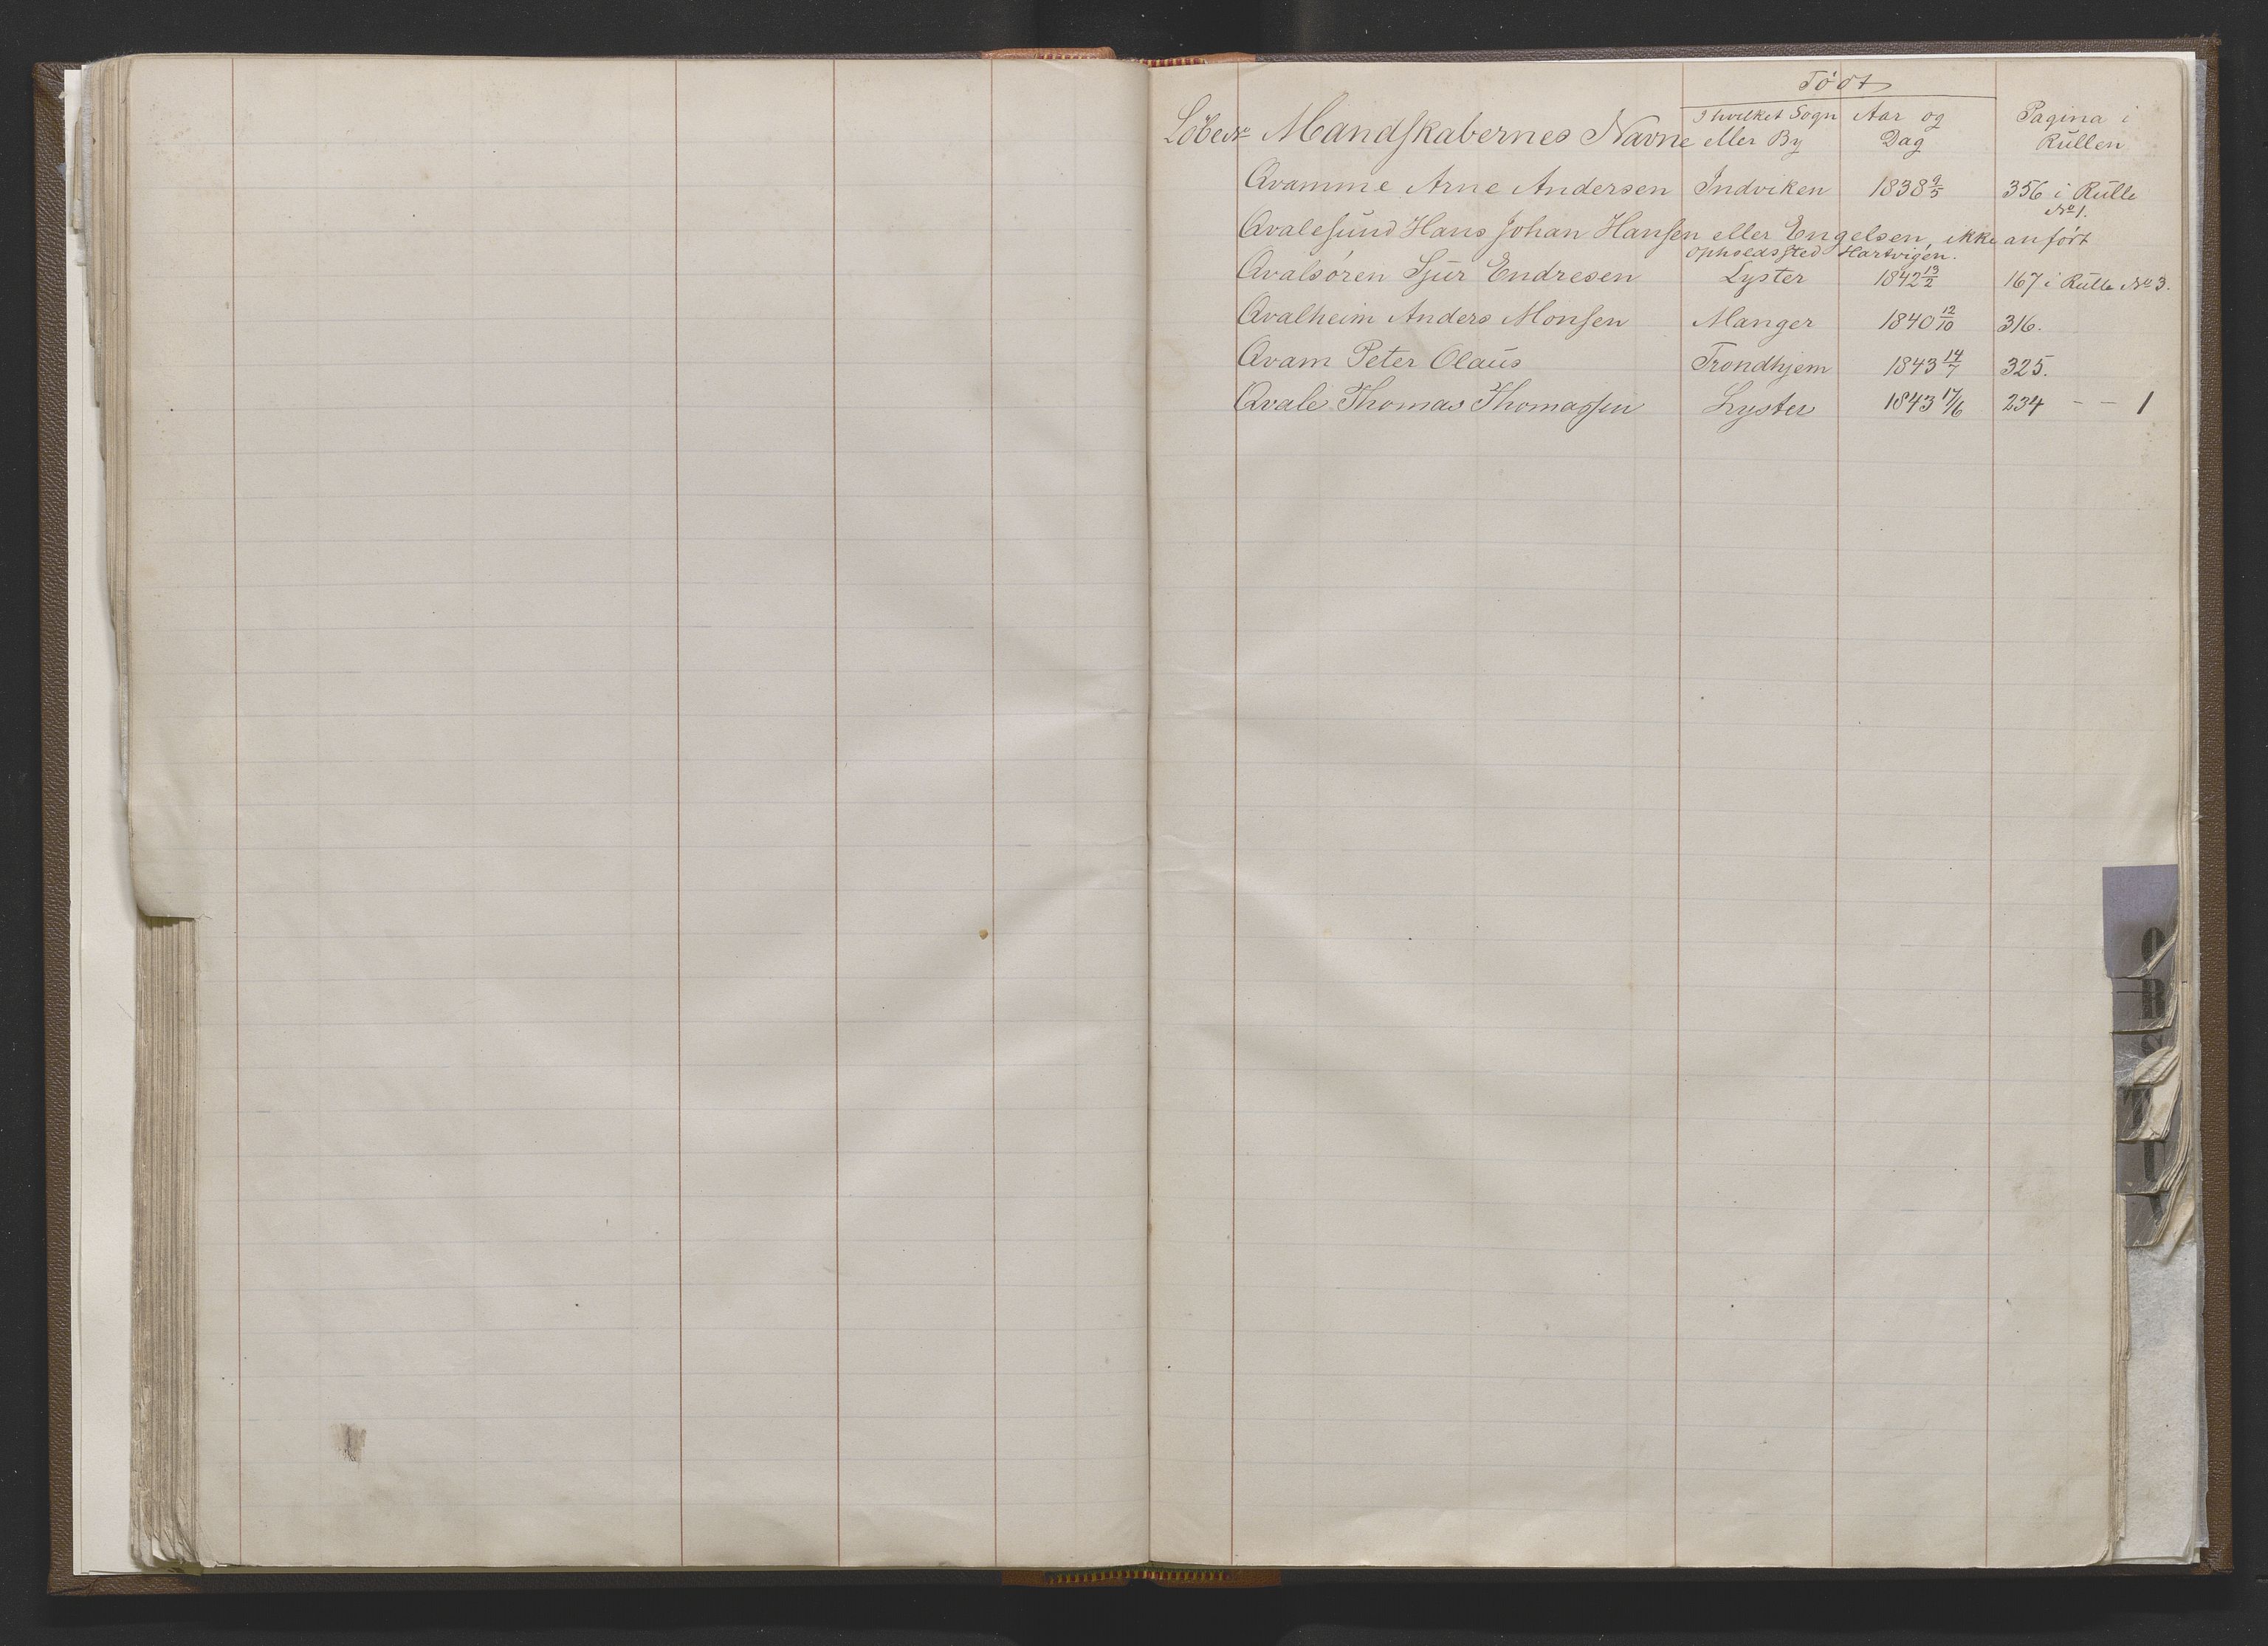 Født
Löbe No Mandskabernes Navne I hvilket Sogn eller By Aar og Dag Pagina i Rullen
Qvamme Arne Andersen Indviken 1838 9/5 356 i Rulle No 1.
Qvalesund Hans Johan Hansen eller Engelsen, ikke anført
Opholdssted Hartvigen.
Qvalsøren Sjur Endresen Lyster 1842 13/2 167 i Rulle No 3.
Qvalheim Anders Monsen Manger 1840 12/10 316.
Qvam Peter Olaus Trondhjem 1843 14/7 325.
Qvale Thomas Thomassen Lyster 1843 17/6 234 - - 1
Q
R
S
T